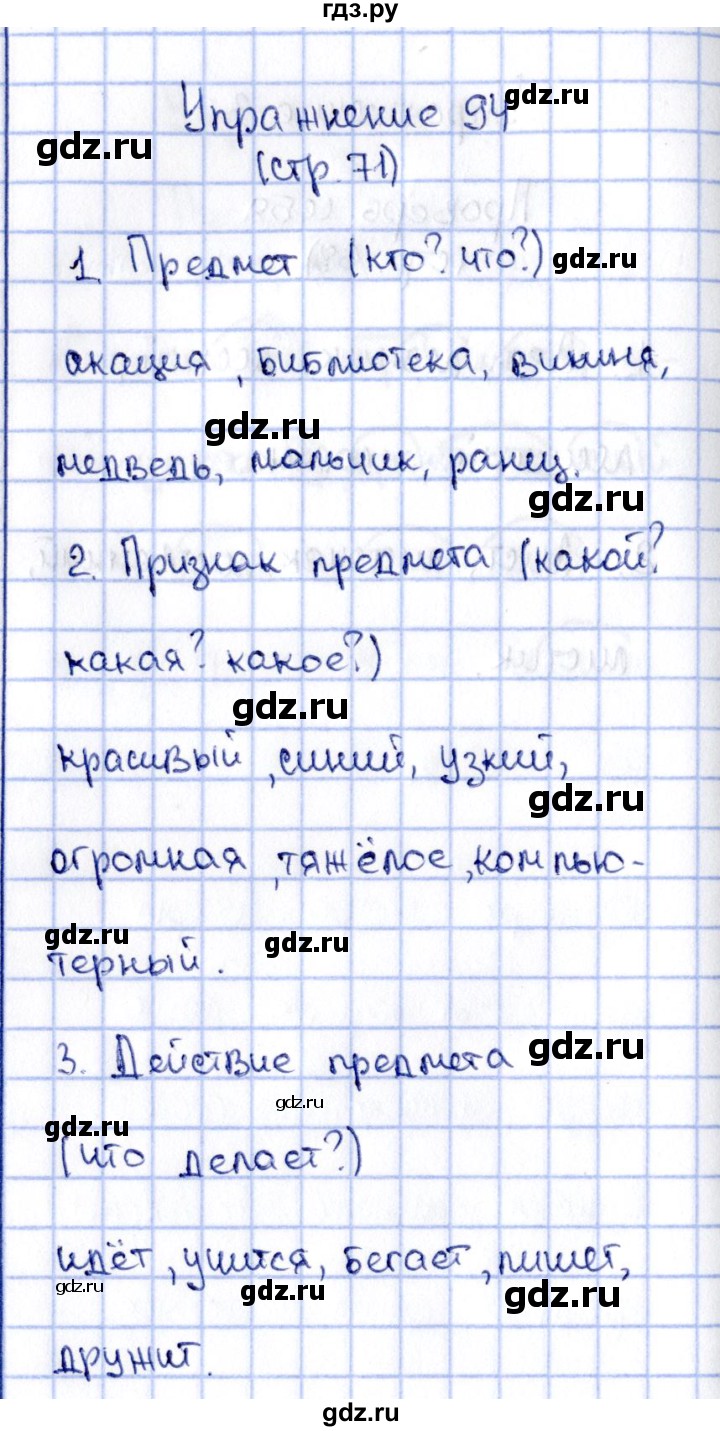 гдз.ру
Упражнение 94
gdz.ru
gdz.ru
(стр. 71)
1. Предмет (кто? что?)
gdz.ru
акация, библиотека, вишня,
gdz.ru
медведь, мальчик, ранец.
gdz.ru
2. Признак предмета (какой?
какая? какое?)
gdz.ru
красивый, синий, узкий,
gdz.ru
огромная, тяжёлое, компью-
gdz.ru
gdz.ru
терный.
3. Действие предмета
gdz.ru
gdz.ru
gdz.ru
(что делает?)
идёт, учится, бегает, пишет,
gdz.ru
gdz.ru
gdz.ru
дружит.
gdz.ru